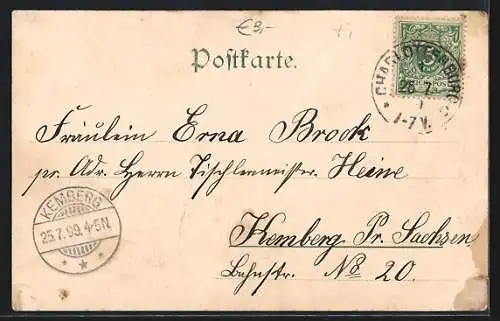 €3,-
Postkarte.
CHARLOTTENBURG
26 7
1-7V.
Fräulein Erna Brock
pr. Adr. Herrn Tischlermeister Heine
KEMBERG
25.7.99. 4-5N
Kemberg Pr. Sachsen
Bahnstr. No 20.